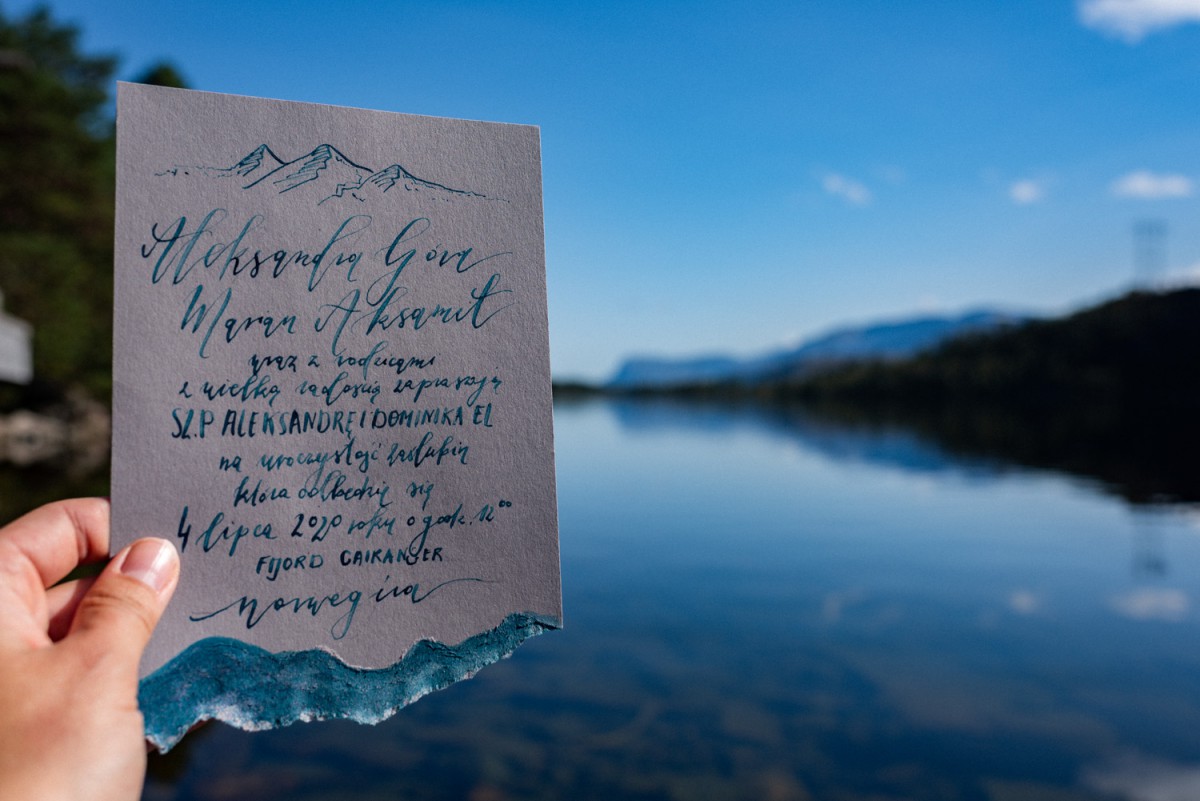 Aleksandra Góra
Maran Aksamit
wraz z rodzicami
z wielką radością zapraszają
SZ.P ALEKSANDRĘ I DOMINIKA EL
na uroczystość zaślubin
która odbędzie się
4 lipca 2020 roku o godz. 12⁰⁰
FIJORD GAIRANGER
Norwegia